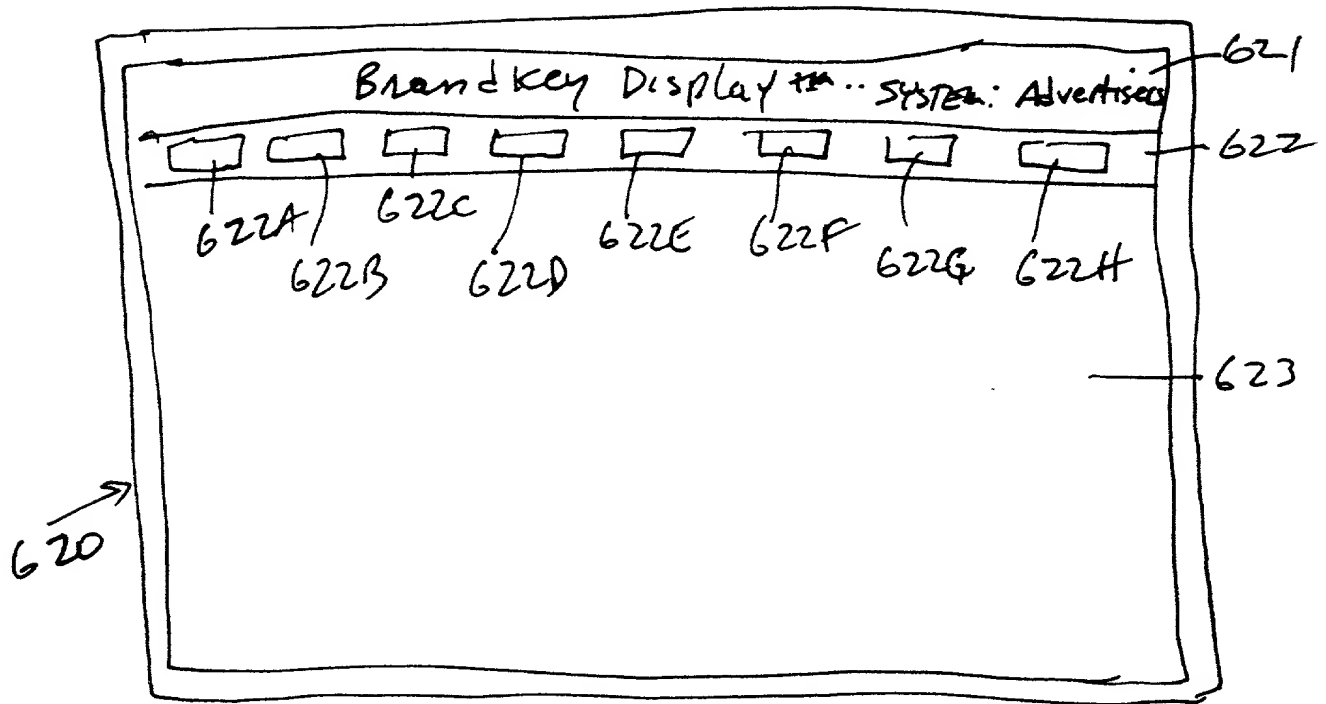 BrandKey Display™.. SYSTEM: Advertisers
621
622
622A 622B 622C 622D 622E 622F 622G 622H
623
620